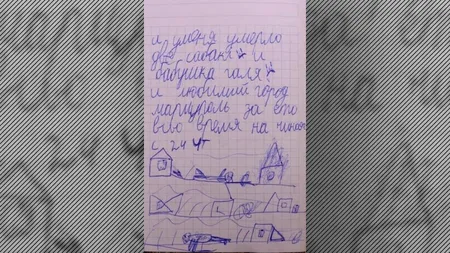 и уменя умерло
две сабаки и
бабушка галя
и любимий город
мариуполь за ето
всю время на
с 24 чт